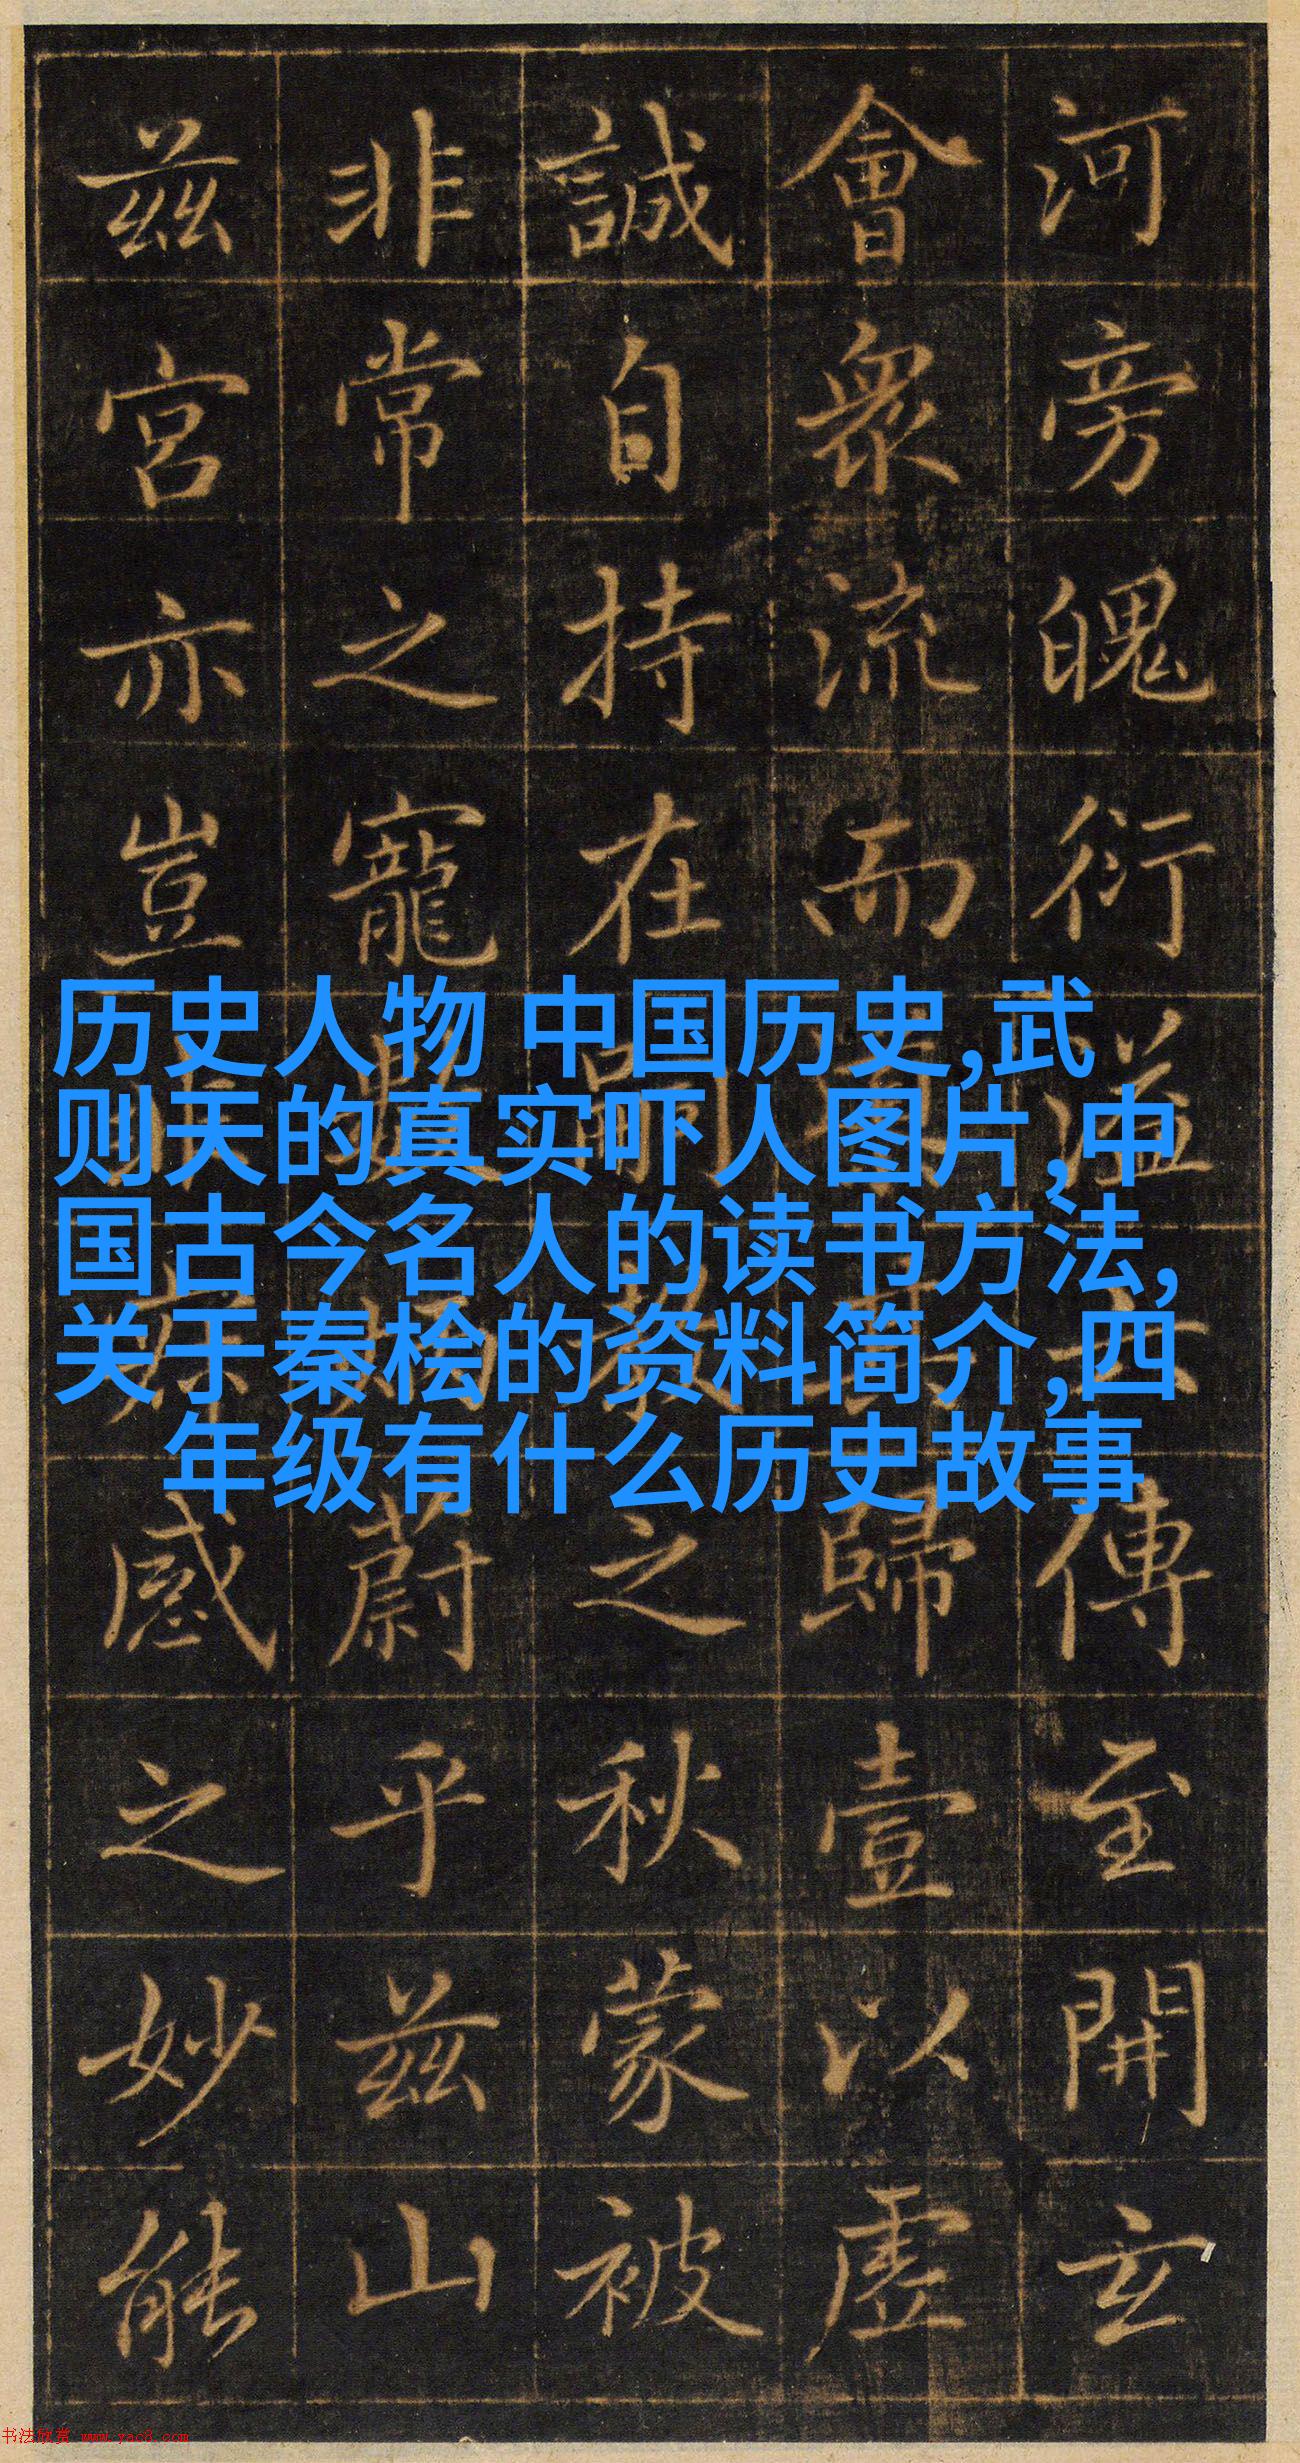 河旁魄衍溢傳至開玄
會眾流而歸壹以虛
誠自持在之秋蒙被
非常之寵蔚乎兹山
兹宮亦豈感之妙能
历史人物 中国历史,武
则天的真实吓人图片,中
国古今名人的读书方法,
关于秦桧的资料简介,四
年级有什么历史故事
书法欣赏 www.yac8.com